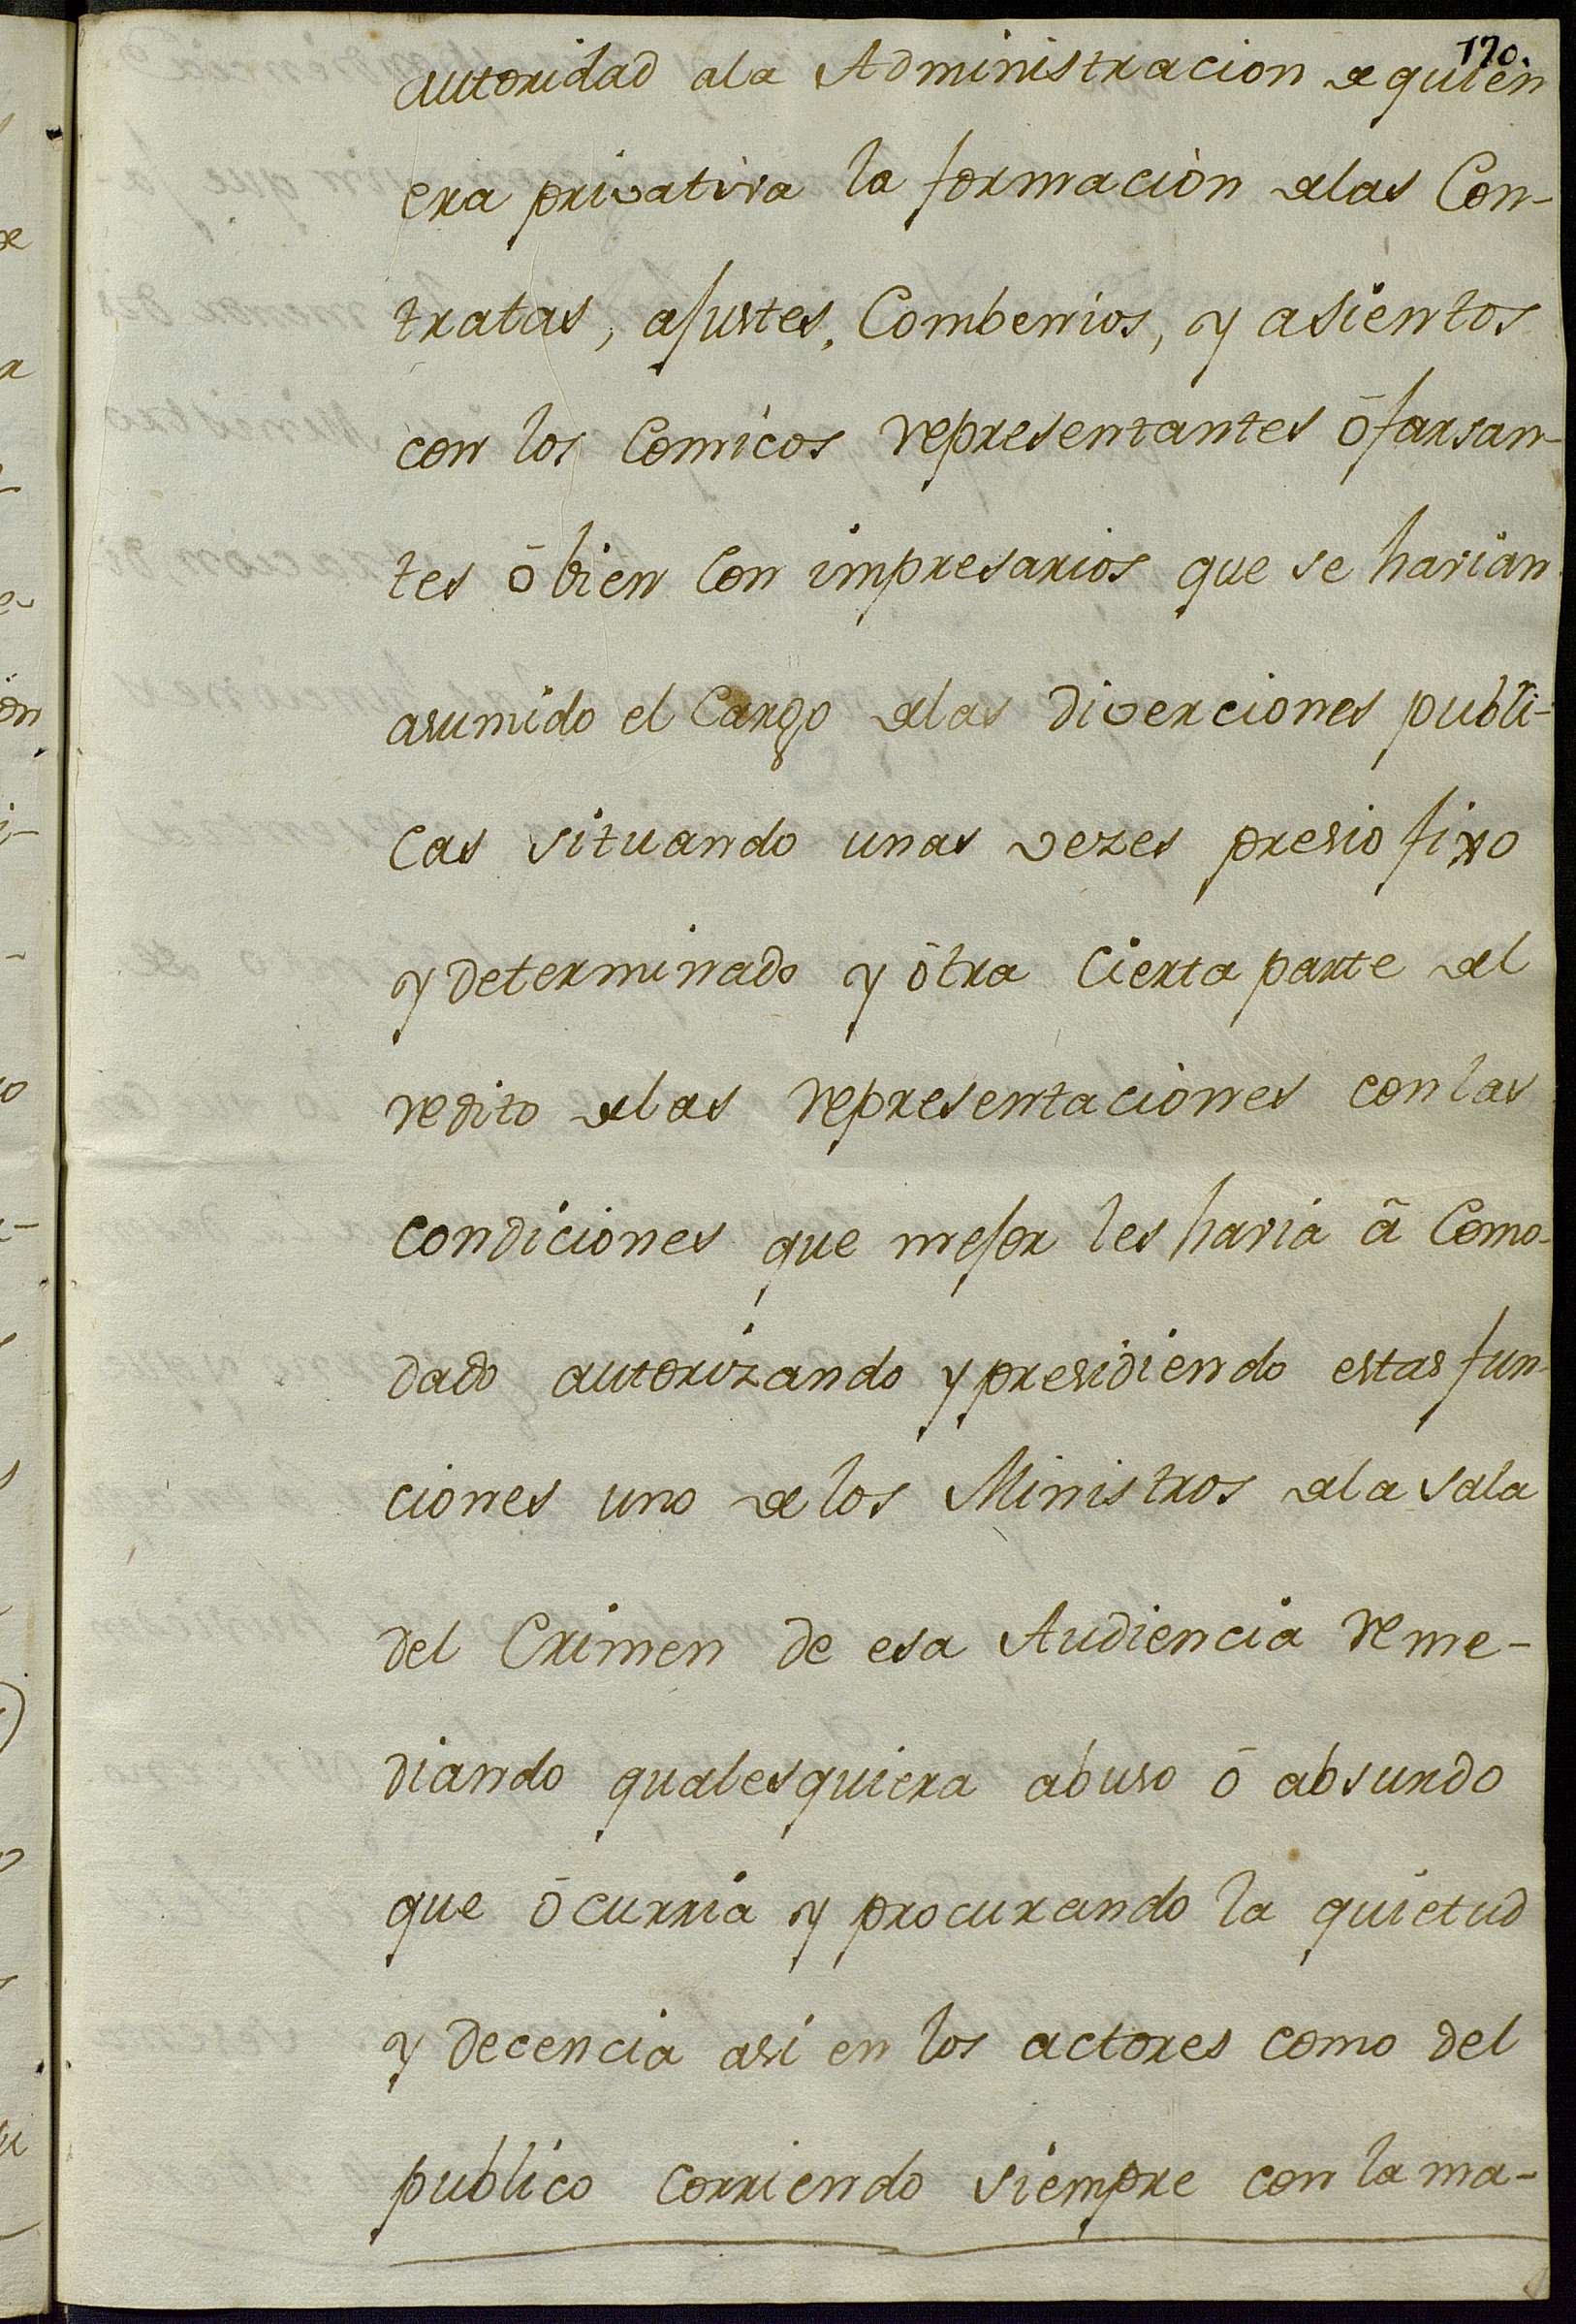 170.
autoridad ala Administracion de quien
era privativa la formaciòn delas Con-
tratas, ajustes, Combenios, y asientos
con los Comicos representantes ō farsan-
tes ō bien Con impresarios que se havian
asumido el Cargo delas diverciones publi-
cas situando unas vezes presio fixo
y determinado y ōtra Cierta parte del
redito delas representaciones con las
condiciones que mejor les havia ā Como-
dado autorizando y presidiendo estas fun-
ciones uno de los Ministros dela sala
del Crimen de esa Audiencia reme-
diando qualesquiera abuso ō absurdo
que ōcurria y procurando la quietud
y decencia asi en los actores como del
publico corriendo siempre con la ma-